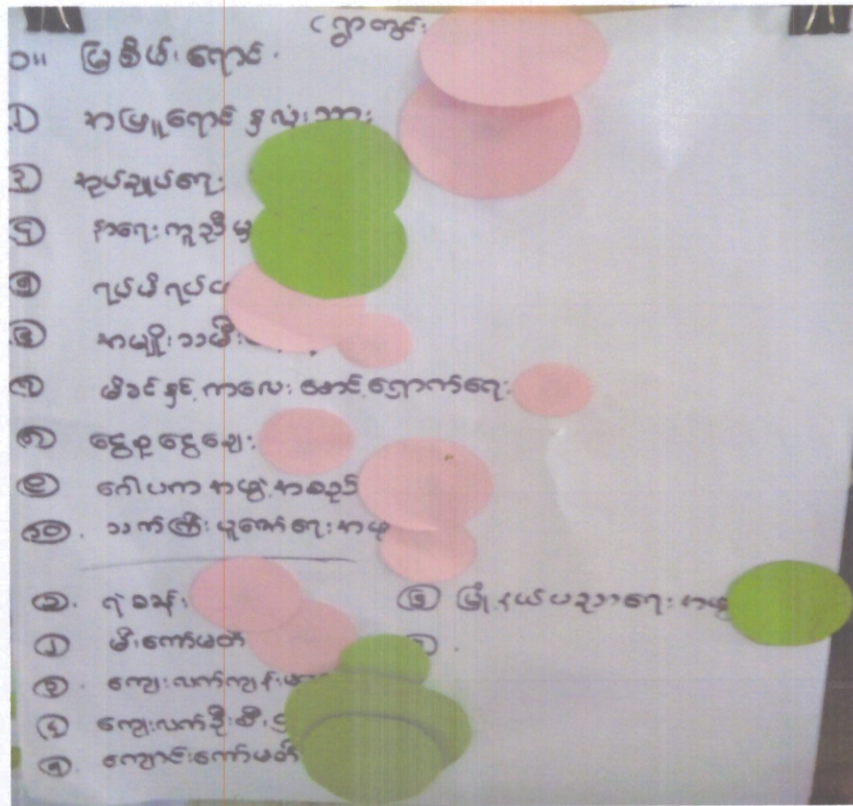 (ရွာတွင်း
၁။ မြစိမ်းရောင်.
၂ အဖြူရောင် နှလုံးသား
၃ အုပ်ချုပ်ရေး
၄ နာရေးကူညီမှု
၅ ရပ်မိရပ်ဖ
၆ အမျိုးသမီး
၇ မိခင်နှင့် ကလေး စောင့်ရှောက်ရေး
၈ ငွေစုငွေချေး
၉ ဂေါပကအဖွဲ့အစည်း
၁၀. သက်ကြီးပူဇော်ရေးအဖွဲ့
၁. ရဲစခန်း
၂ မီးကော်မတီ
၃. ကျေးလက်ကျန်းမာ
၄ ကျေးလက်ဦးစီးဌ
၅. ကျောင်းကော်မတီ
၆ မြို့နယ်ပညာရေးအဖွဲ့
၇.